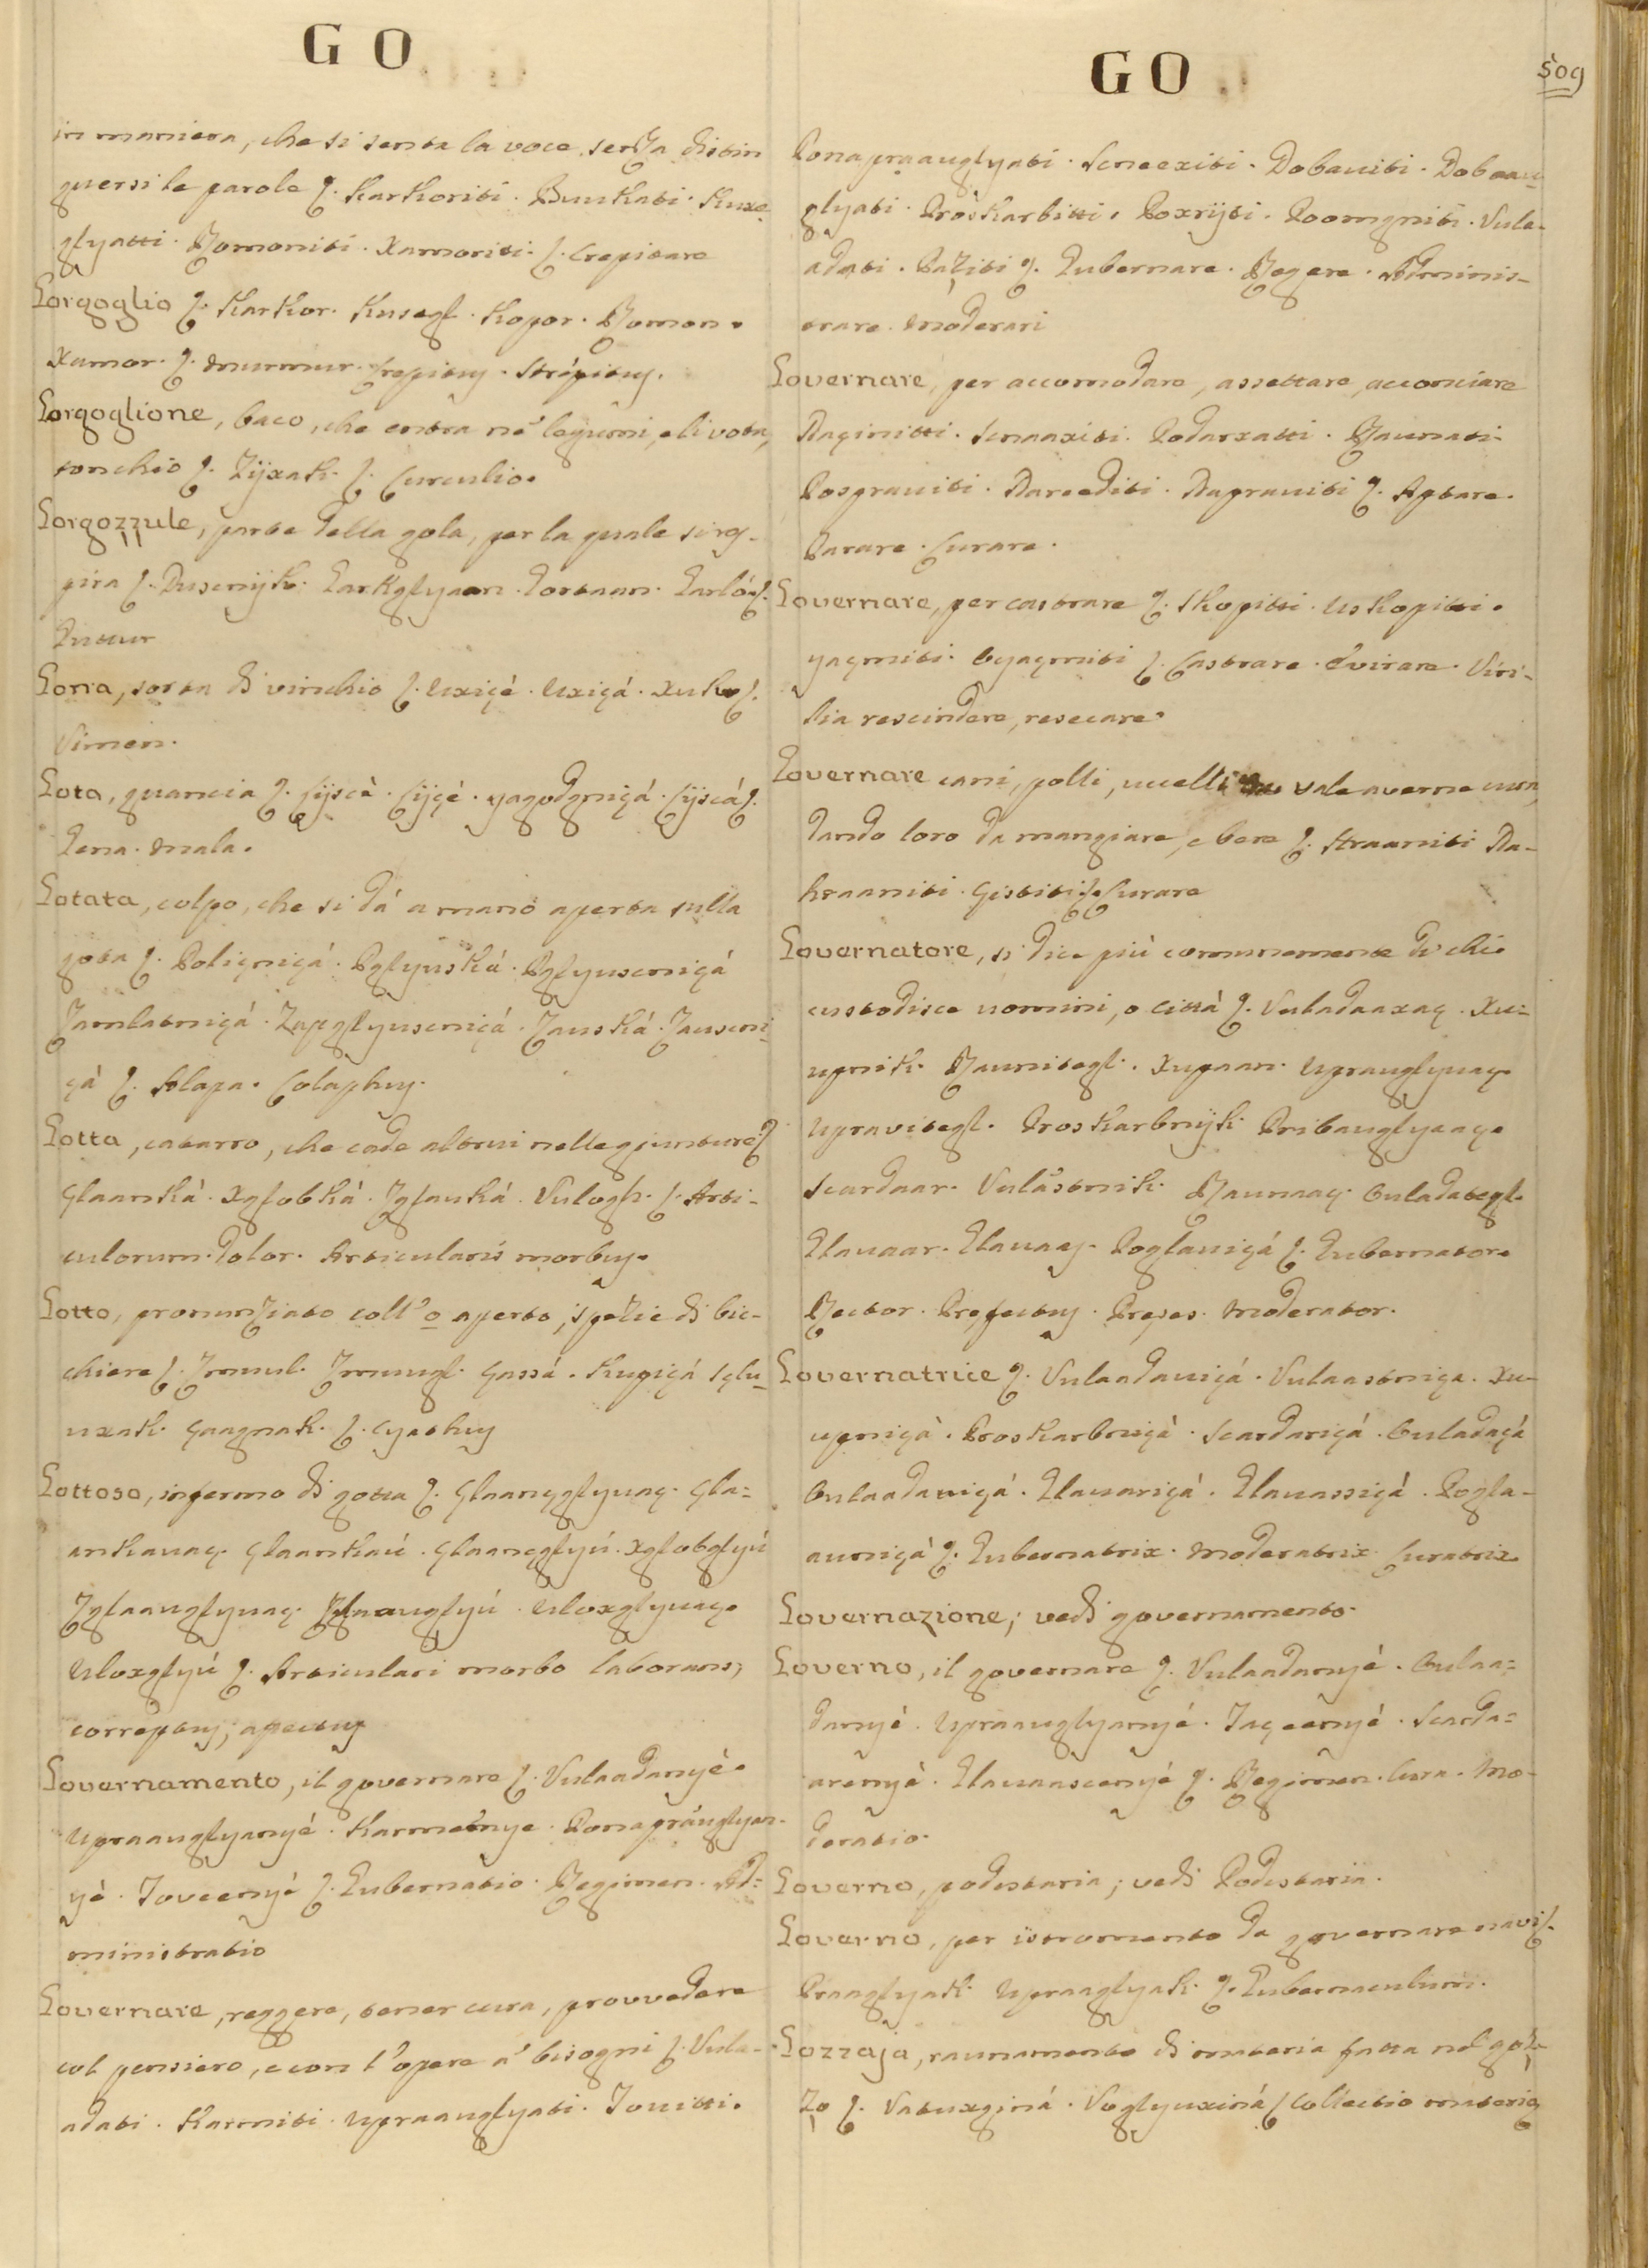 GO
in maniera, che si senta la voce senza distin
guersi le parole ſ. Karkoriti. Bunkati. Kuxe
glyatti. Romoniti. Xamoriti. ſ. Crepitare
Gorgoglio ſ. Karkor. Kusegl. Kopor. Romon.
Xamor. ſ. murmur. Crepitus. Strépitus.
Gorgoglione, baco, che entra ne' legumi, e li vota,
tonchio ſ. Zijxak. ſ. Curculio.
Gorgozzule, parte della gola, per la quale si res-
pira ſ. Duscnijk. Garkglyaan. Gortaan. Garló ſ.
Guttur
Gorra, sorta di virichio ſ. Uxiçè. Uxiçá. Xuka ſ.
Vimen.
Gota, guancia ſ. Lijscè. Lijçé. yagodgniçá. Lijscá ſ.
Gena. mala.
Gotata, colpo, che si dá a mano aperta sulla
gota ſ. Poliçniçá. Pglyuská. Pglyuscniçá
Zamlatniçá. Zapglyuscniçá. Zauská. Zauscni
çá ſ. Alapa. Colaphus.
Gotta, catarro, che cade altrui nelle giunture ſ
Glaanká. Xglobká. Zglauká. Vulogh. ſ. Arti-
culorum dolor. Articularis morbus.
Gotto, pronunziato coll'o aperto, spezie di bic-
chiere ſ. Zmul. Zmugl. Çassá. Kupiçá Sçlu-
nxak. Çaagnak. ſ. Cyathus
Gottoso, infermo di gotta ſ. Glaançglyuaç. Gla-
ankauaç. Glaankaú. Glaançglyú. Xglobglyú
Zglaauglyuaç. Zglaauglyú. Uloxglyuaç.
Uloxglyú ſ. Articulari morbo laborans,
correptus, afectus
Governamento, il governare ſ. Vulaadanyè.
Upraauglyanyé. Karmetnye. Ponapráuglyan-
yè. Toveenyè ſ. Gubernatio. Regimen. Ad-
ministratio
Governare, reggere, tener cura, provvedere
col pensiero, e con l'opere a' bisogni ſ. Vula-
adati. Karmiti. Upraauglyati. Touitti.
GO
509
Ponapraauglyati. Scneexiti. Dobauiti. Dobaau-
glyati. Proskarbitti. Poxrijti. Poomgniti. Vula-
adati. Paziti ſ. Gubernare. Regere. Adminis-
trare. Moderari
Governare, per accomodare, assettare, acconciare
Naçinitti. Scnaaxiti. Podarxatti. Raunati.
Pospraviti. Nareediti. Napraviti ſ. Aptare.
Parare. Curare.
Governare, per castrare ſ. Skopitti. Uskopitti.
yaçmiti. Oyaçmiti ſ. Castrare. Evirare. Viri-
lia rescindere, resecare.
Governare cani, polli, uccelli vale averne cura,
dando loro da mangiare, e bere ſ. Hraaniti Na-
hraaniti. Gistiti ſ. Curare
Governatore, si dice più comunemente di chi
custodisce uomini, o città ſ. Vuladaaxaç. Xu-
upnik. Raunitegl. Xupaan. Uprauglyuaç.
Upravitegl. Proskarbnijk Pribauglyaaç.
Scardaar. Vulástnik. Raunaaç. Ouladategl.
Glauaar. Glauaaç. Poglauiçá ſ. Gubernator.
Rector. Prefectus. Preses. Moderator.
Governatrice ſ. Vulaadauiçá. Vulaastniça. Xu-
upniçà. Proskarbniçà. Scardariçá. Ouladaçá
Oulaadauiçá. Glauariçá. Glauassiçá. Pogla-
auniçà ſ. Gubernatrix. Moderatrix. Curatrix
Governazione; vedi governamento.
Governo, il governare ſ. Vulaadanyè. Oulaa-
danyè. Upraauglyanyé. Taçeenyè. Scarda-
arenyè. Glauaascenyé ſ. Regimen. Cura. Mo-
deratio.
Governo, podestaria; vedi Podestaria.
Governo, per istrumento da governare navi ſ.
Praaglyak. Upraaglyak. ſ. Gubernaculum.
Gozzaja, raunamento di materia fatta nel goz-
zo ſ. Vatuxginá. Voglyuxiná ſ Collectio materię